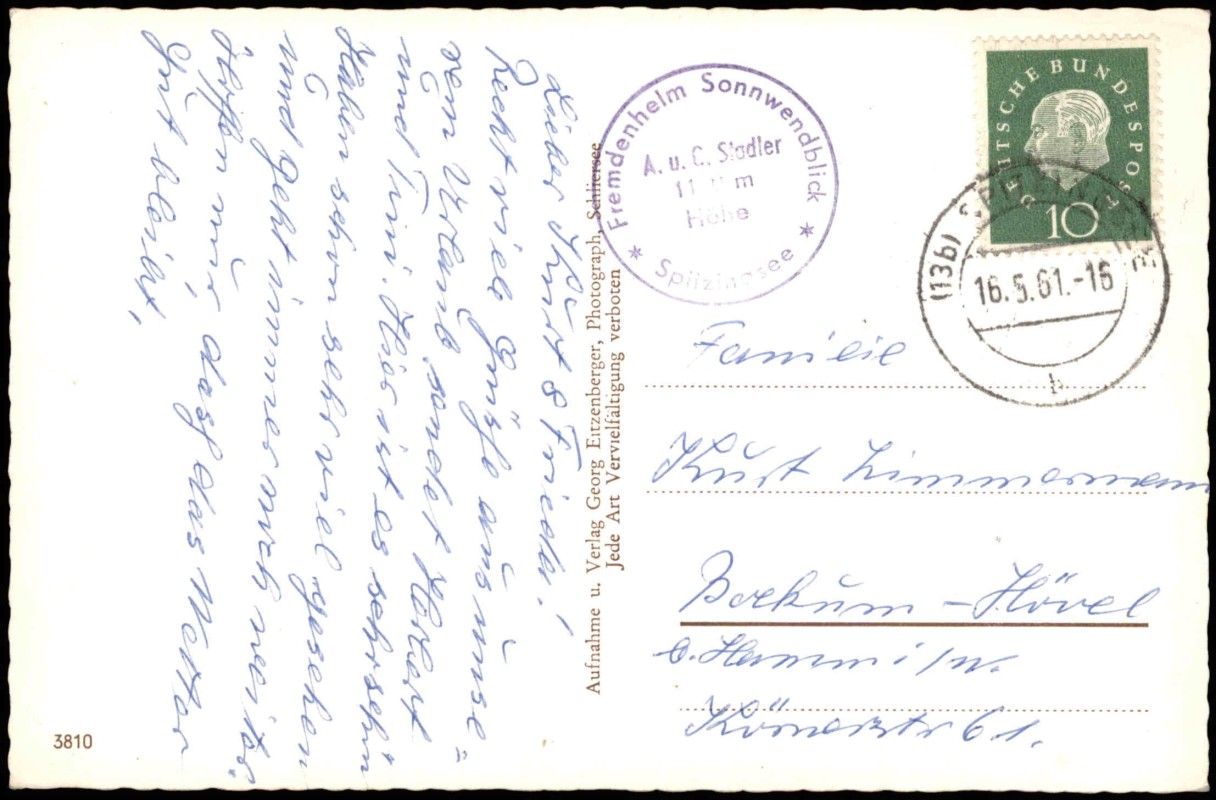 Lieber Kurt & Friedl!
Recht viele Grüße aus unse=
rem Urlaub sendet Hubert
und Tini. Hier ist es sehr schön
Haben schon sehr viel gesehen
und geht immer noch weiter.
Hoffen nur, dass das Wetter
Gut bleibt,
Aufnahme u. Verlag Georg Eitzenberger, Photograph, Schliersee
Jede Art Vervielfältigung verboten
Fremdenheim Sonnwendblick
A. u. C. Stadler
m
Höhe
* Spitzingsee *
DEUTSCHE BUNDESPOST
10
(13b)
16.5.61.-16
b
Familie
Kurt Zimmermann
Bockum-Hövel
b. Hamm i/W.
Körnerstr 61.
3810